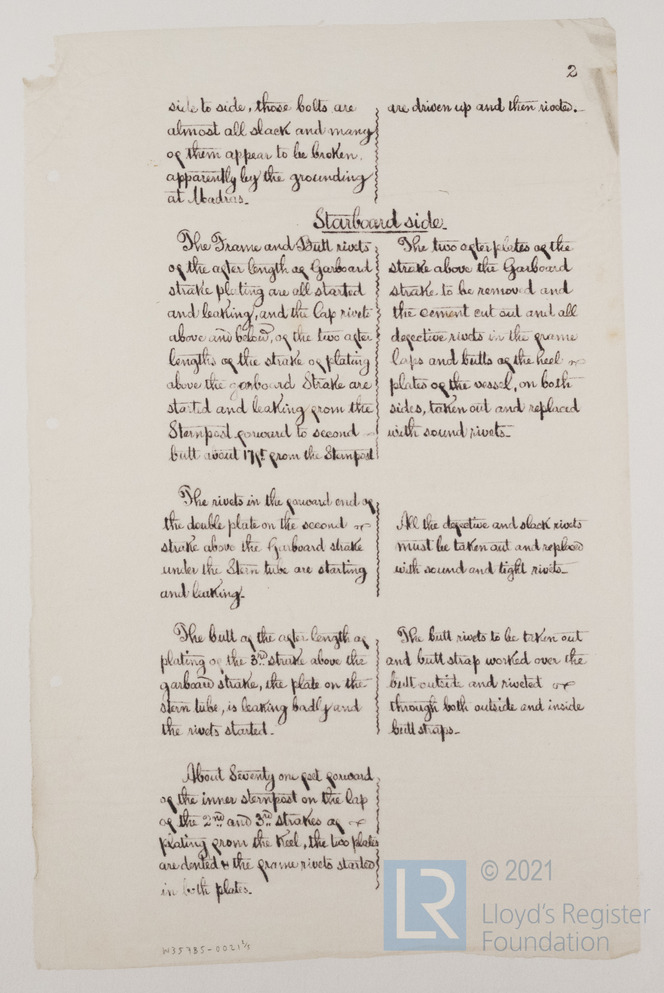 2
side to side, those bolts are
almost all slack and many
of them appear to be broken,
apparently by the grounding
at Madras.
are driven up and then riveted.
Starboard side.
The Frame and Butt rivets
of the after length of Garboard
strake plating are all started
and leaking, and the lap rivets
above and below, of the two after
lengths of the strake of plating
above the garboard Strake are
started and leaking from the
Sternpost forward to second
butt about 17ft from the Sternpost
The two after plates of the
strake above the Garboard
strake to be removed and
the cement cut out and all
defective rivets in the frame
laps and butts of the heel
plates of the vessel, on both
sides, taken out and replaced
with sound rivets.
The rivets in the forward end of
the double plate on the second
strake above the Garboard strake
under the Stern tube are starting
and leaking.
All the defective and slack rivets
must be taken out and replaced
with sound and tight rivets.
The butt of the after length of
plating of the 3rd strake above the
garboard strake, the plate on the
stern tube, is leaking badly and
the rivets started.
The butt rivets to be taken out
and butt strap worked over the
butt outside and riveted
through both outside and inside
butt straps.
About Seventy one feet forward
of the inner sternpost on the lap
of the 2nd and 3rd strakes of
plating from the Keel, the two plates
are dented & the frame rivets started
in both plates.
W35785-0021 1/2
LR
© 2021
Lloyd's Register
Foundation